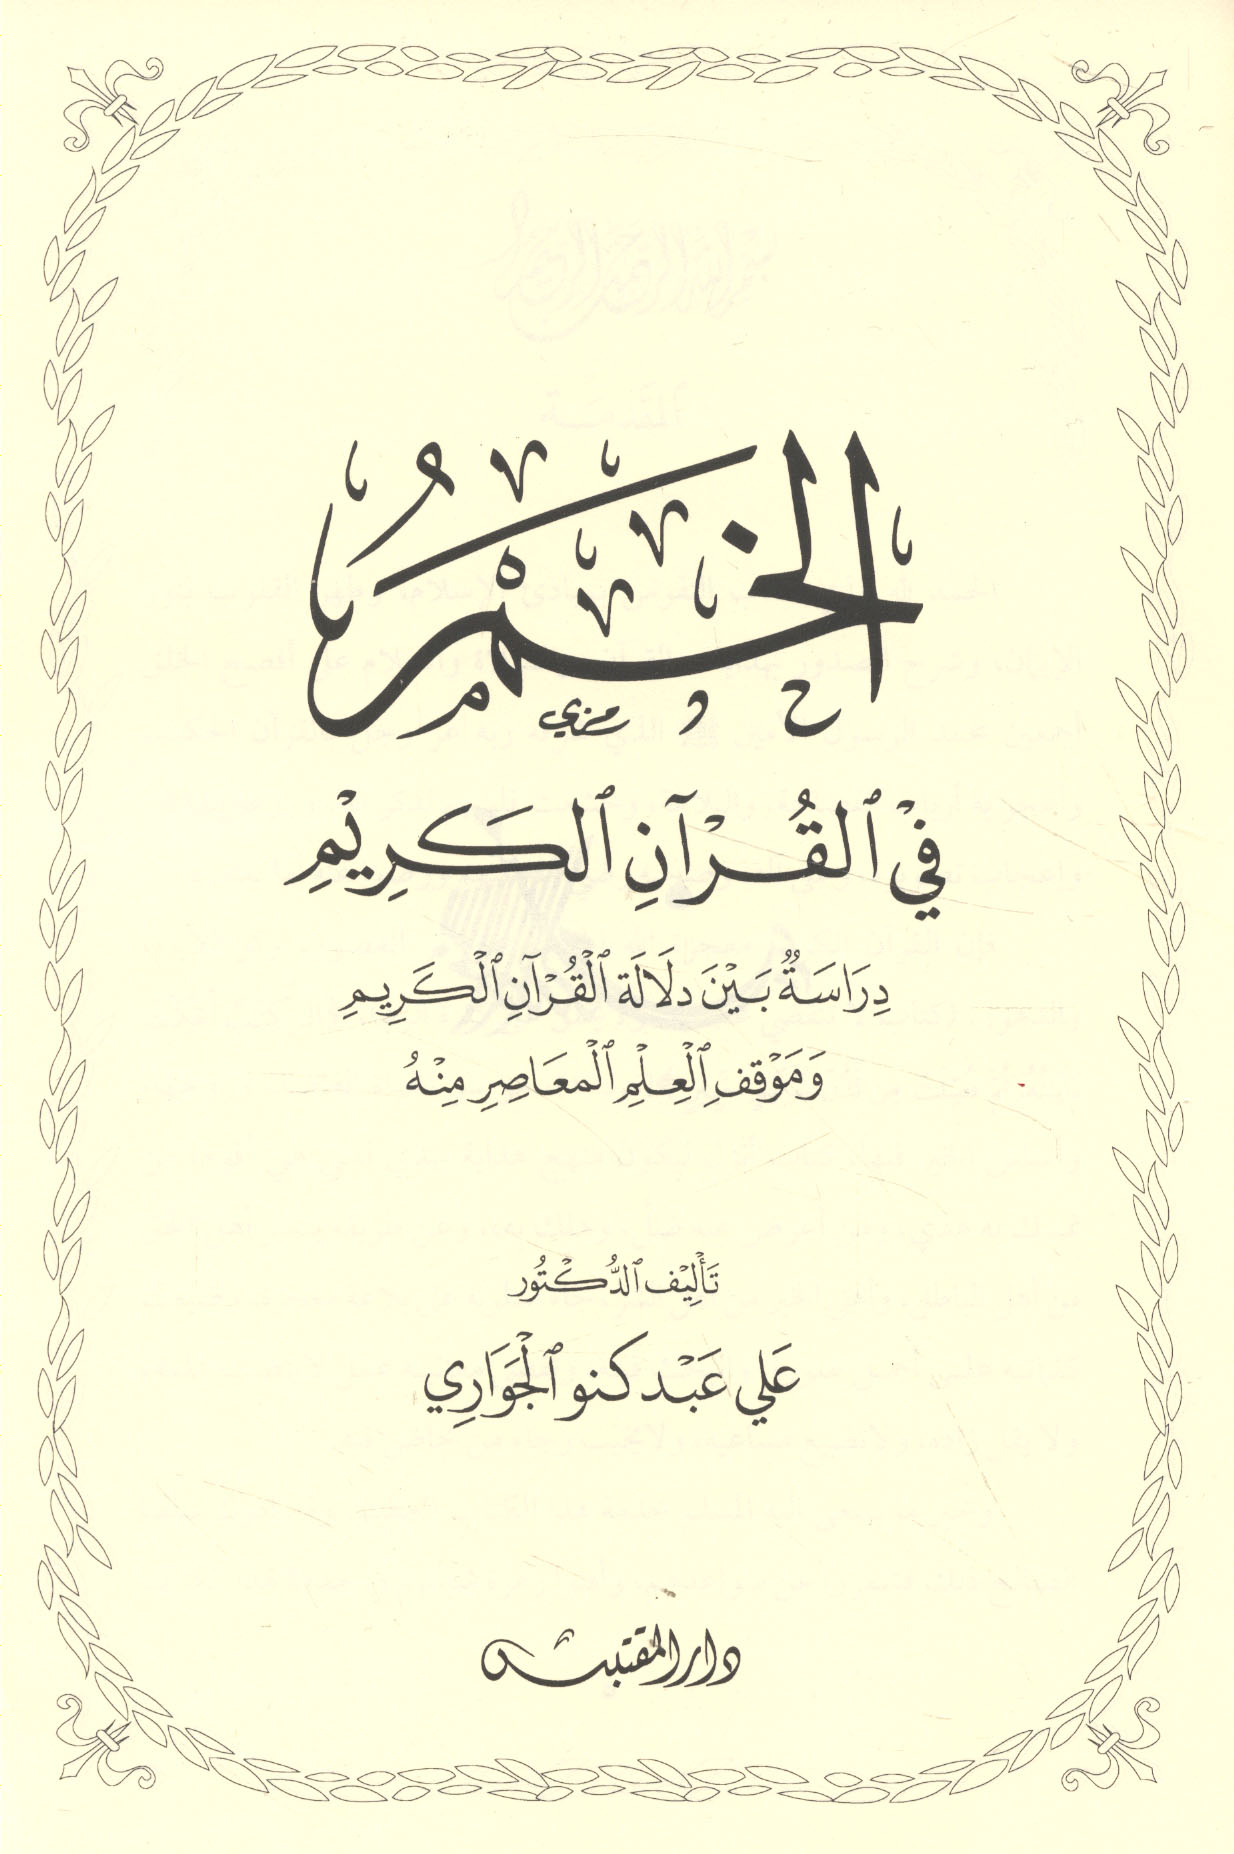 الخَمْرُ
فِيْ ٱلْقُرْآنِ ٱلكَرِيْمِ
دِرَاسَةٌ بَيْنَ دلَالَة ٱلْقُرْآنِ ٱلْكَرِيمِ
وَمَوْقفِ ٱلْعِلْمِ ٱلْمعَاصِرِ مِنْهُ
تَأْلِيْف ٱلدُّكْتُور
عَلي عَبْد كنو ٱلْجَوَارِي
دار المقتبس